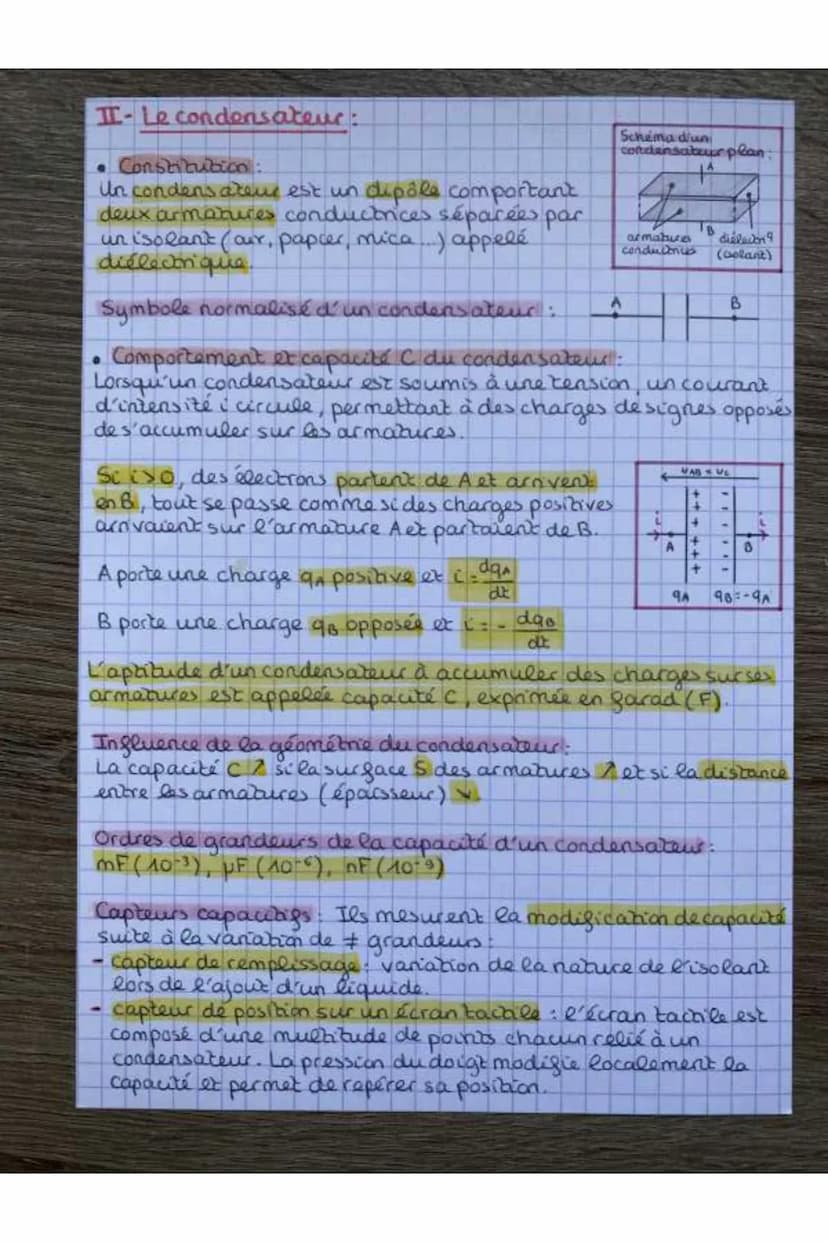 II- Le condensateur :
Schéma d'un
condensateur plan :
A
B
armatures
conductrices
diélectriq
(isolant)
• Constitution :
Un condensateur est un dipôle comportant
deux armatures conductrices séparées par
un isolant (air, papier, mica...) appelé
diélectrique.
Symbole normalisé d'un condensateur :
A B
• Comportement et capacité C du condensateur :
Lorsqu'un condensateur est soumis à une tension, un courant
d'intensité i circule, permettant à des charges de signes opposés
de s'accumuler sur les armatures.
Si i>0, des électrons partent de A et arrivent
en B, tout se passe comme si des charges positives
arrivaient sur l'armature A et partaient de B.
UAB = UC
+ -
+ -
+ -
+ -
+ -
+ -
i i
A B
qA qB=-qA
A porte une charge qA positive et i = dqA/dt
B porte une charge qB opposée et i = - dqB/dt
L'aptitude d'un condensateur à accumuler des charges sur ses
armatures est appelée capacité C, exprimée en farad (F).
Influence de la géométrie du condensateur :
La capacité C ↗ si la surface S des armatures ↗ et si la distance
entre les armatures (épaisseur) ↘
Ordres de grandeurs de la capacité d'un condensateur :
mF (10⁻³), µF (10⁻⁶), nF (10⁻⁹)
Capteurs capacitifs : Ils mesurent la modification de capacité
suite à la variation de ≠ grandeurs :
- capteur de remplissage : variation de la nature de l'isolant
lors de l'ajout d'un liquide.
- capteur de position sur un écran tactile : l'écran tactile est
composé d'une multitude de points chacun relié à un
condensateur. La pression du doigt modifie localement la
capacité et permet de repérer sa position.